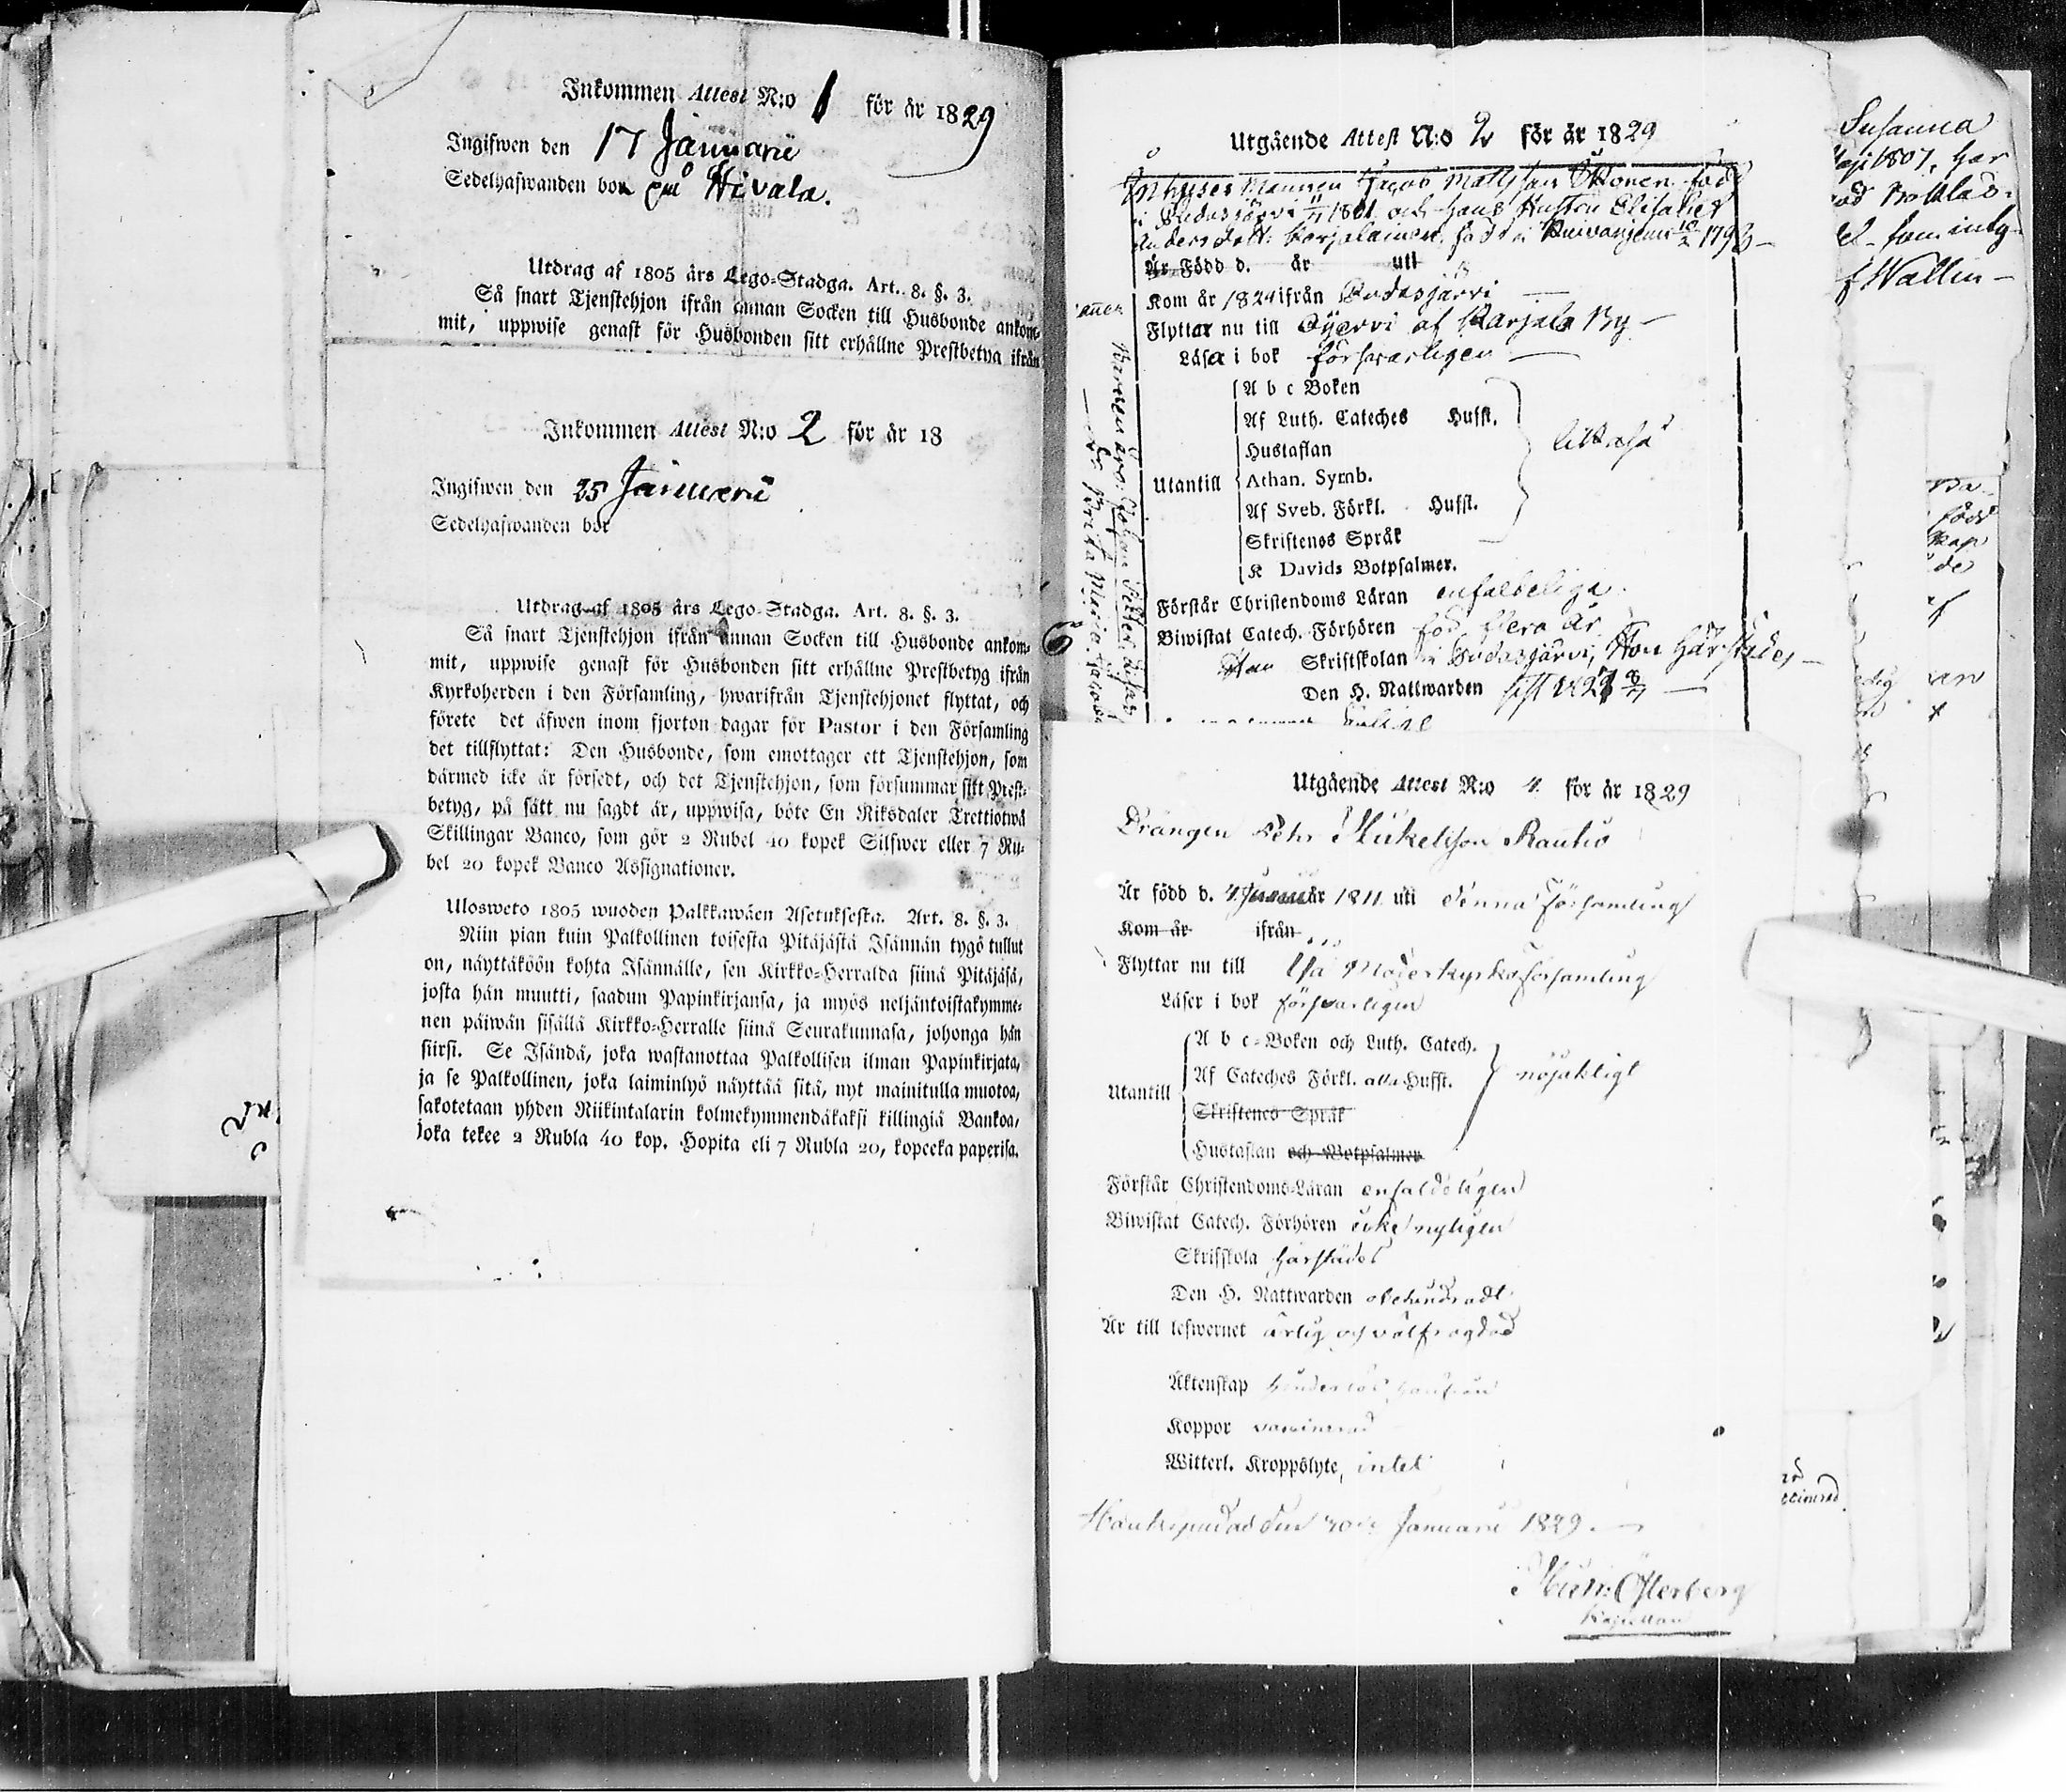 Inkommen Attest N:o 1 för år 1829
Ingifwen den 17 Januarii
Sedelhafwanden bor på Hivala.
Utdrag af 1805 års Lego-Stadga. Art. 8. §. 3.
Så snart Tjenstehjon ifrån annan Socken till Husbonde ankom-
mit, uppwise genast för Husbonden sitt erhållne Prestbetyg ifrån
Inkommen Attest N:o 2 för år 18
Ingifwen den 25 Januarii
Sedelhafwanden bor
Utdrag af 1805 års Lego-Stadga. Art. 8. §. 3.
Så snart Tjenstehjon ifrån annan Socken till Husbonde ankom-
mit, uppwise genast för Husbonden sitt erhållne Prestbetyg ifrån
Kyrkoherden i den Församling, hwarifrån Tjenstehjonet flyttat, och
förete det äfwen inom fjorton dagar för Pastor i den Församling
det tillflyttat: Den Husbonde, som emottager ett Tjenstehjon, som
därmed icke är försedt, och det Tjenstehjon, som försummar sitt Prest-
betyg, på sätt nu sagdt är, uppwisa, böte En Riksdaler Trettiotwå
Skillingar Banco, som gör 2 Rubel 40 kopek Silfwer eller 7 Ru-
bel 20 kopek Banco Assignationer.
Ulosweto 1805 wuoden Palkkawäen Asetuksesta. Art. 8. §. 3.
Niin pian kuin Palkollinen toisesta Pitäjästä Isännän tygö tullut
on, näyttäköön kohta Isännälle, sen Kirkko-Herralda siinä Pitäjäsä,
josta hän muutti, saadun Papinkirjansa, ja myös neljäntoistakymme-
nen päiwän sisällä Kirkko-Herralle siinä Seurakunnasa, johonga hän
siirsi. Se Isändä, joka wastanottaa Palkollisen ilman Papinkirjata,
ja se Palkollinen, joka laiminlyö näyttää sitä, nyt mainitulla muotoa,
sakotetaan yhden Riikintalarin kolmekymmendäkaksi killingiä Bankoa,
joka tekee 2 Rubla 40 kop. Hopita eli 7 Rubla 20, kopecka paperisa.
Utgående Attest N:o 2 för år 1829
Inhyses Mannen Jacob Matts son född
i Pudasjärvi 1801 och hans Hustru Elisabet
Anders dott: Karjalainen, född i 10/2 1793
Är Född d. år uti
Kom år 1824 ifrån Pudasjärvi
Flyttar nu till af Karjala By
Läsa i bok försvarligen
A b c Boken
Af Luth. Cateches Hufst.
Hustaflan
Utantill Athan. Symb. likaså
Af Sveb. Förkl. Hufst.
Skriftenes Språk
K Davids Botpsalmer.
Förstår Christendoms Läran enfaldeliga
Biwistat Catech. Förhören för flera år
Han Skriftskolan i Pudasjärvi, Hon härstädes
Den H. Nattwarden sist
Barnen äro: Johan Petter, Lisas
Brita Maria
Utgående Attest N:o 4. för år 1829
Drängen Petr Mickelsson Rautio
Är född d. 4 Januarii år 1811 uti denna församling
Kom år ifrån
Flyttar nu till Ijå Moderkyrkoförsamling
Läser i bok försvarligen
A b c-Boken och Luth. Catech.
Utantill Af Cateches Förkl. alla Hufst. nöjaktigt
Skriftenes Språk
Hustaflan och Botpsalmer
Förstår Christendoms-Läran enfaldeligen
Biwistat Catech. Förhören icke nyligen
Skrifskola härstädes
Den H. Nattwarden obehindradt
Är till lefwernet ärlig och välfrägdad
Äktenskap hinderlös
Koppor vaccinerad
Witterl. Kroppslyte, intet
Haukipudas den 30de Januarii 1829.
Österberg
Kapellan
Susanna
1807, har
Wallin